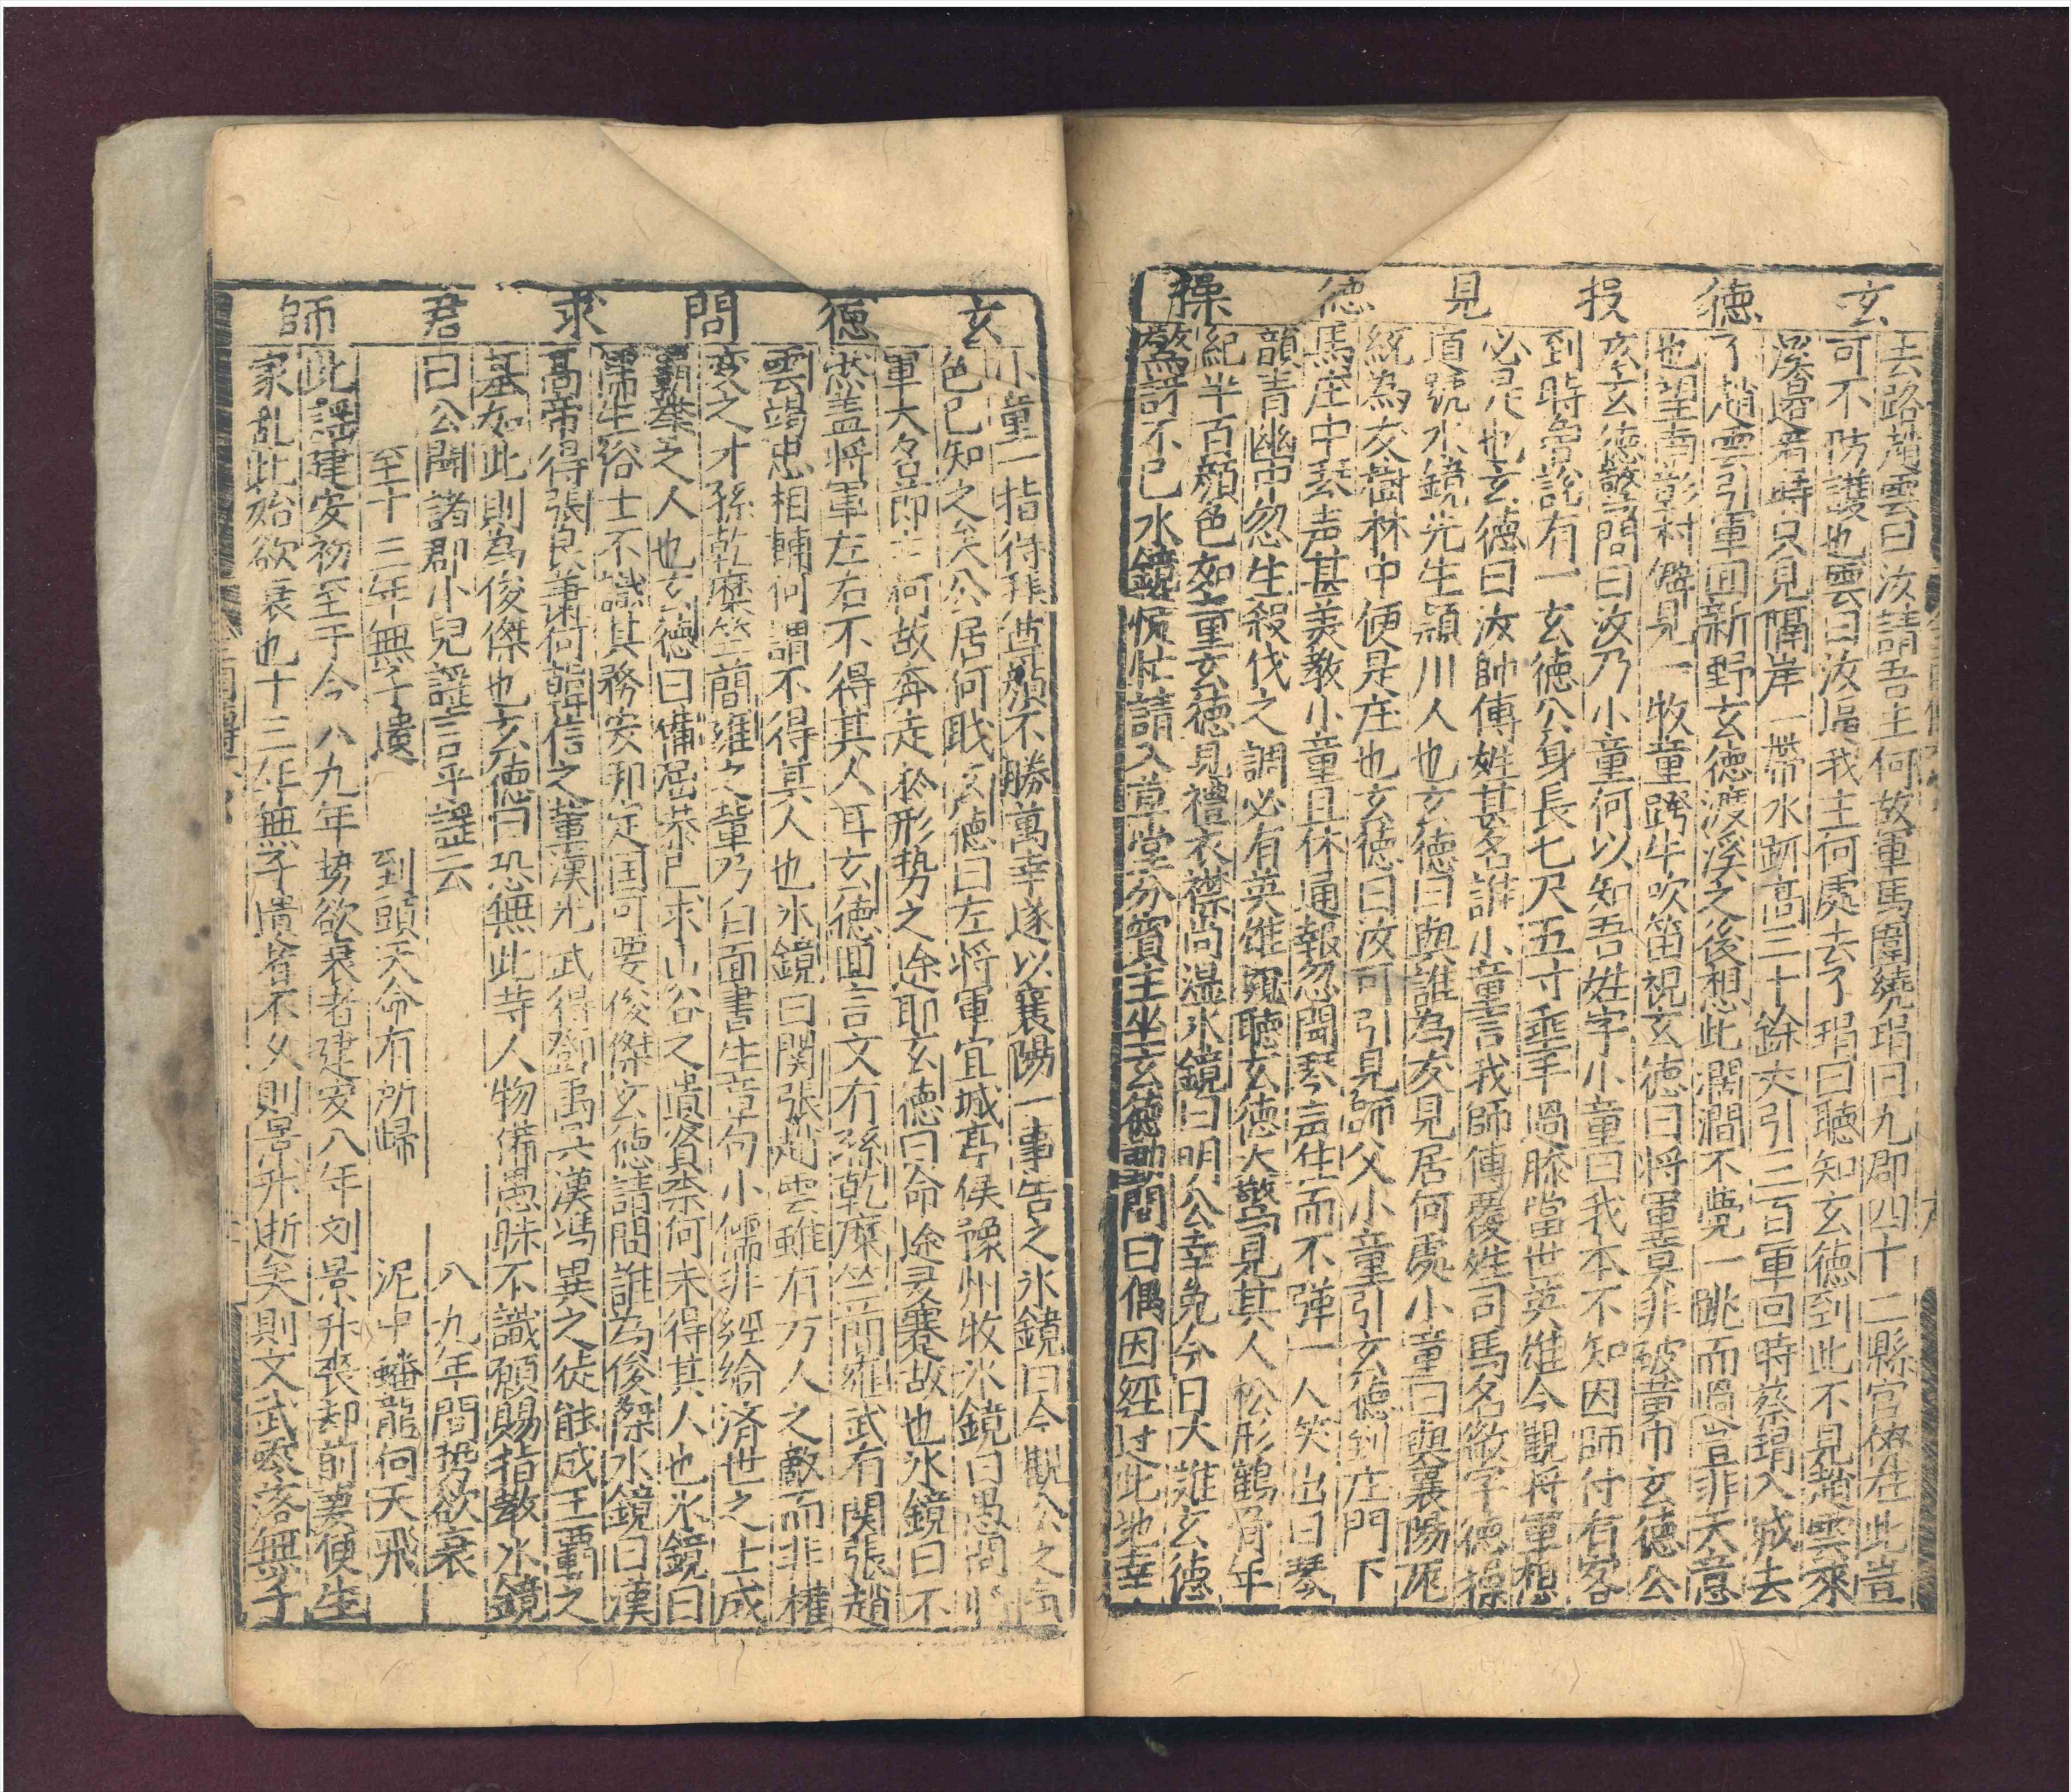 玄德投見德操
去路趙雲曰汝請吾主何故軍馬圍繞瑁曰九郡四十二縣官僚在此豈
可不防護也雲曰汝逼我主何處去了瑁曰聽知玄德到此不見趙雲來
溪邊看時只見隔岸一帶水跡高三十餘丈引三百軍回時蔡瑁入城去
了趙雲引軍囬新野玄德渡溪之後想此濶澗不覺一跳而過豈非天意
也望南彰村僻見一牧童跨牛吹笛視玄德曰将軍莫非破黃巾玄德公
玄德驚問曰汝乃小童何以知吾姓字小童曰我本不知因師付有客
到時曾說有一玄德公身長七尺五寸垂手過膝當世英雄今觀将軍想
必是也玄德曰汝師傅姓甚名誰小童言我師傅覆姓司馬名徽字德操
道號水鏡先生潁川人也玄德曰與誰為友見居何處小童曰與襄陽龐
統為友樹林中便是庄也玄德曰汝可引見師父小童引玄德到庄門下
馬庄中琴声甚美教小童且休通報忽聞琴声住而不彈一人笑出曰琴
韻青幽中忽生殺伐之調必有英雄竊聽玄德大驚見其人松形鶴骨年
紀半百顔色如童玄德見禮衣襟尚湿水鏡曰明公幸免今日大難玄德
驚訝不已水鏡慌忙請入草堂分賓主坐玄德動問曰偶因經过此地幸
玄德問求君師
小童一指得拜尊顔不勝萬幸遂以襄陽一事告之水鏡曰今觀公之面
色已知之矣公居何耺玄德曰左将軍宜城亭侯豫州牧水鏡曰愚聞将
軍大名即何故奔走於形勢之途耶玄德曰命途多蹇故也水鏡曰不
然盖将軍左右不得其人耳玄德囬言文有孫乾糜竺簡雍武有関張趙
雲竭忠相輔何謂不得其人也水鏡曰関張趙雲雖有万人之敵而非權
变之才孫乾糜竺簡雍之輩乃白面書生章句小儒非經綸済世之士成
霸業之人也玄德曰備屈恭已求山谷之遺賢奈何未得其人也水鏡曰
儒生俗士不識其務安邦定国可要俊傑玄德請問誰為俊傑水鏡曰漢
高帝得張良蕭何韓信之輩漢光武得鄧禹吳漢馮異之徒能成王霸之
基如此則為俊傑也玄德曰恐無此等人物備愚昧不識願賜指教水鏡
曰公聞諸郡小兒謡言乎謡云　八九年間勢欲衰
至十三年無孑遺　到頭天命有所歸　泥中蟠龍向天飛
此謡建安初至于今八九年势欲衰者建安八年刘景升喪却前妻便生
家乱此始欲衰也十三年無孑遺者不久則景升逝矣則文武零落無孑